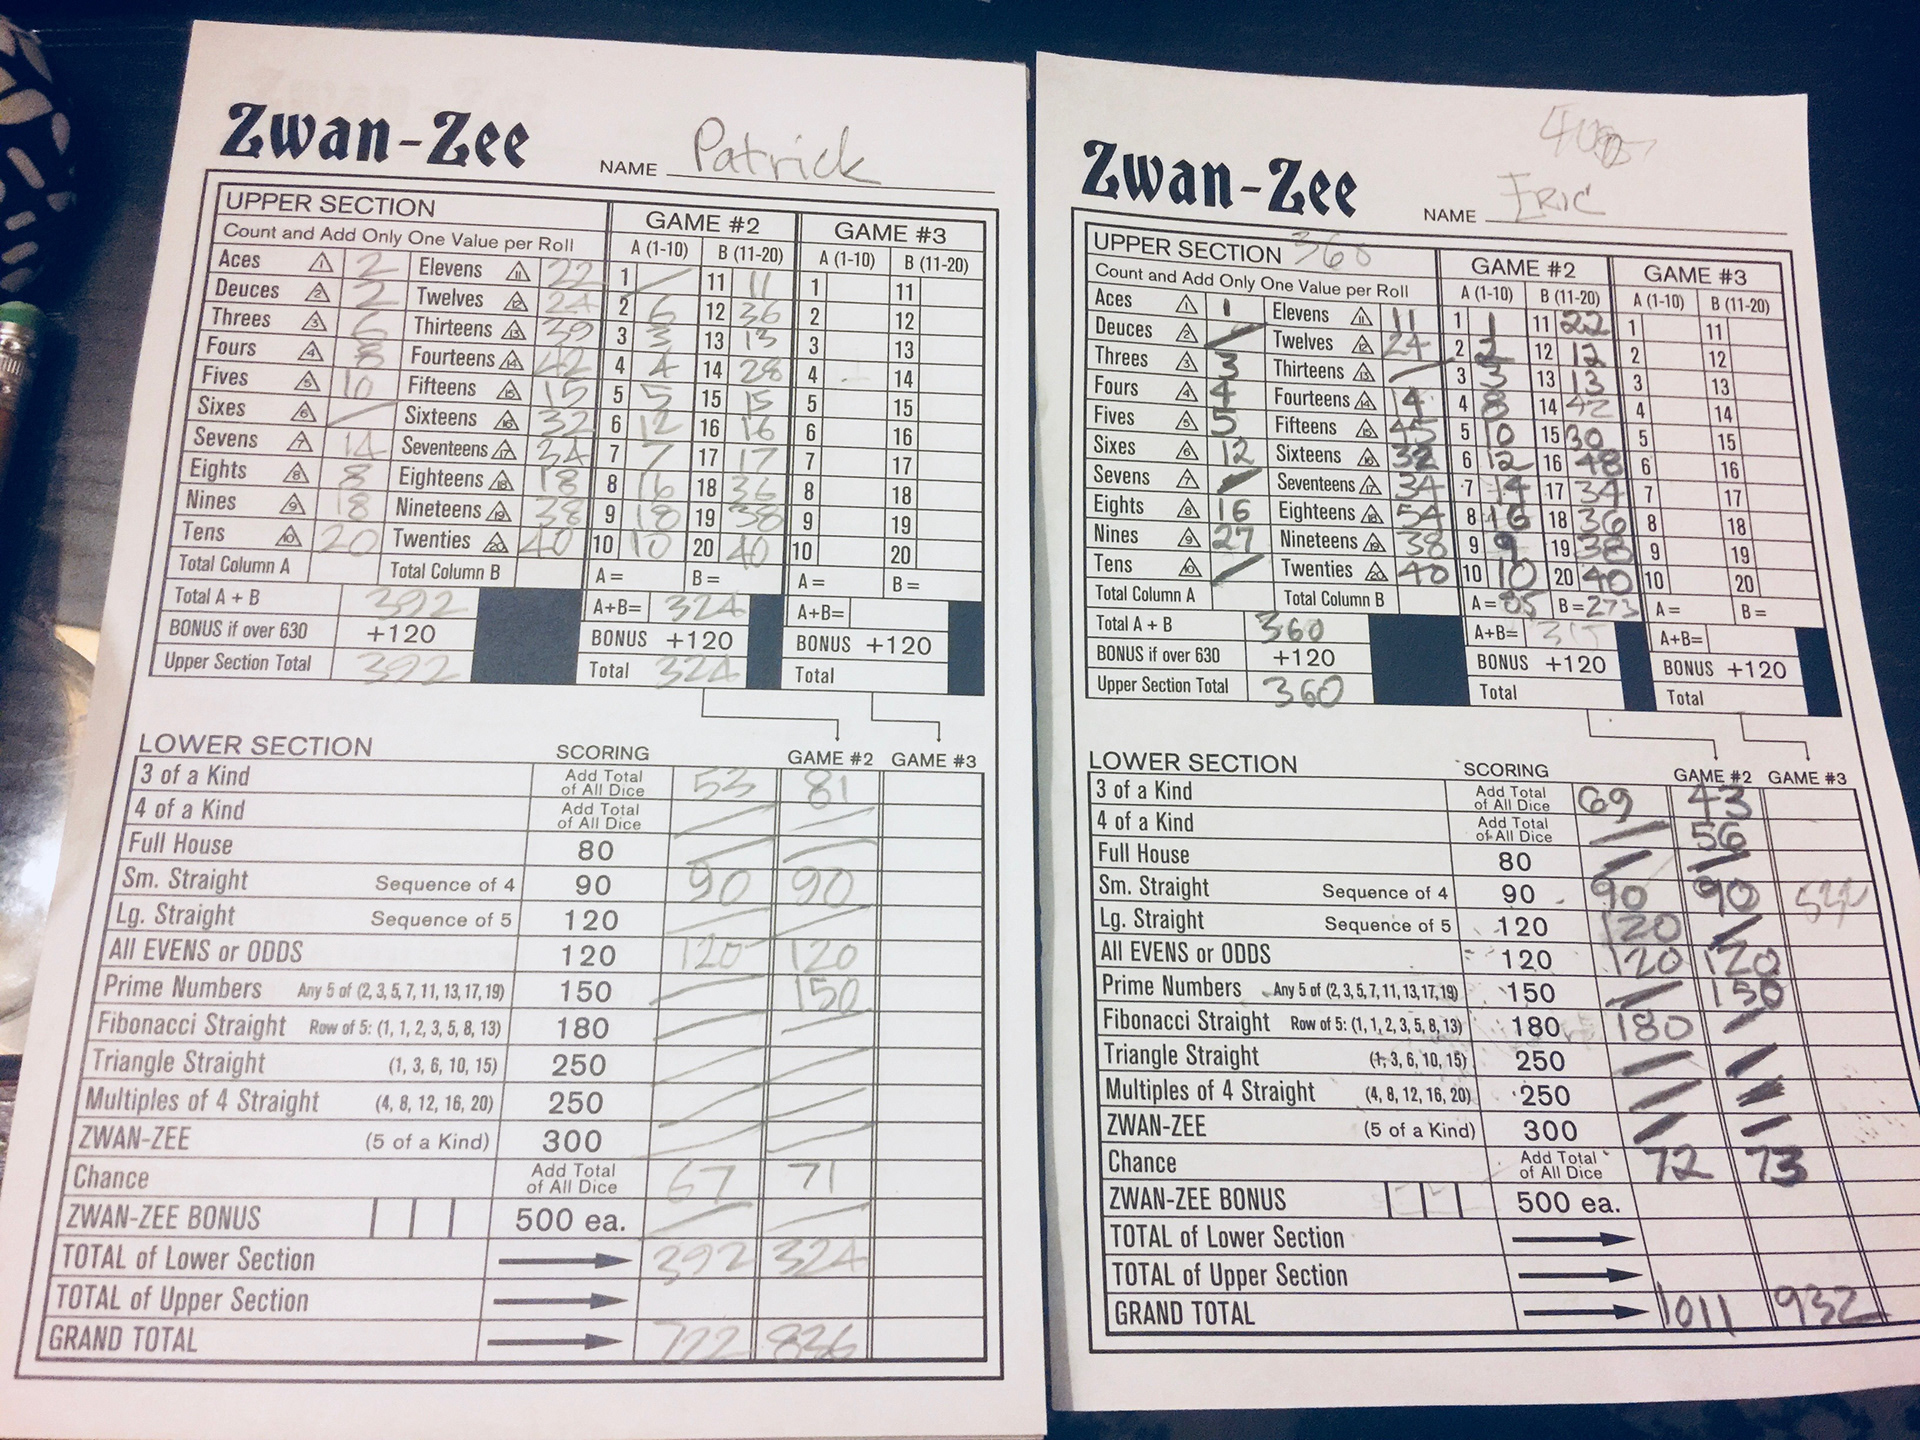 Zwan-Zee
NAME Patrick
UPPER SECTION GAME #2 GAME #3
Count and Add Only One Value per Roll A (1-10) B (11-20) A (1-10) B (11-20)
Aces 1 2 Elevens 11 22 1 / 11 11 1 11
Deuces 2 2 Twelves 12 24 2 6 12 36 2 12
Threes 3 6 Thirteens 13 39 3 3 13 13 3 13
Fours 4 8 Fourteens 14 42 4 4 14 28 4 14
Fives 5 10 Fifteens 15 15 5 5 15 15 5 15
Sixes 6 / Sixteens 16 32 6 12 16 16 6 16
Sevens 7 14 Seventeens 17 34 7 7 17 17 7 17
Eights 8 8 Eighteens 18 18 8 16 18 36 8 18
Nines 9 18 Nineteens 19 38 9 18 19 38 9 19
Tens 10 20 Twenties 20 40 10 10 20 40 10 20
Total Column A Total Column B A= B= A= B=
Total A + B 392 A+B= 324 A+B=
BONUS if over 630 +120 BONUS +120 BONUS +120
Upper Section Total 392 Total 324 Total
LOWER SECTION SCORING GAME #2 GAME #3
3 of a Kind Add Total of All Dice 53 81
4 of a Kind Add Total of All Dice / /
Full House 80 / /
Sm. Straight Sequence of 4 90 90 90
Lg. Straight Sequence of 5 120 / /
All EVENS or ODDS 120 120 120
Prime Numbers Any 5 of (2, 3, 5, 7, 11, 13, 17, 19) 150 / 150
Fibonacci Straight Row of 5: (1, 1, 2, 3, 5, 8, 13) 180 / /
Triangle Straight (1, 3, 6, 10, 15) 250 / /
Multiples of 4 Straight (4, 8, 12, 16, 20) 250 / /
ZWAN-ZEE (5 of a Kind) 300 / /
Chance Add Total of All Dice 67 71
ZWAN-ZEE BONUS 500 ea. / /
TOTAL of Lower Section 392 324
TOTAL of Upper Section
GRAND TOTAL 722 836
Zwan-Zee
NAME Eric
UPPER SECTION 360 GAME #2 GAME #3
Count and Add Only One Value per Roll A (1-10) B (11-20) A (1-10) B (11-20)
Aces 1 1 Elevens 11 11 1 1 11 22 1 11
Deuces 2 / Twelves 12 24 2 2 12 12 2 12
Threes 3 3 Thirteens 13 / 3 3 13 13 3 13
Fours 4 4 Fourteens 14 14 4 8 14 42 4 14
Fives 5 5 Fifteens 15 45 5 10 15 30 5 15
Sixes 6 12 Sixteens 16 32 6 12 16 48 6 16
Sevens 7 / Seventeens 17 34 7 14 17 34 7 17
Eights 8 16 Eighteens 18 54 8 16 18 36 8 18
Nines 9 27 Nineteens 19 38 9 9 19 38 9 19
Tens 10 / Twenties 20 40 10 10 20 40 10 20
Total Column A Total Column B A= 85 B= 273 A= B=
Total A + B 360 A+B= A+B=
BONUS if over 630 +120 BONUS +120 BONUS +120
Upper Section Total 360 Total Total
LOWER SECTION SCORING GAME #2 GAME #3
3 of a Kind Add Total of All Dice 69 43
4 of a Kind Add Total of All Dice / 56
Full House 80 / /
Sm. Straight Sequence of 4 90 90 90
Lg. Straight Sequence of 5 120 120 /
All EVENS or ODDS 120 120 120
Prime Numbers Any 5 of (2, 3, 5, 7, 11, 13, 17, 19) 150 / 150
Fibonacci Straight Row of 5: (1, 1, 2, 3, 5, 8, 13) 180 180 /
Triangle Straight (1, 3, 6, 10, 15) 250 / /
Multiples of 4 Straight (4, 8, 12, 16, 20) 250 / /
ZWAN-ZEE (5 of a Kind) 300 / /
Chance Add Total of All Dice 72 73
ZWAN-ZEE BONUS 500 ea.
TOTAL of Lower Section
TOTAL of Upper Section
GRAND TOTAL 1011 932